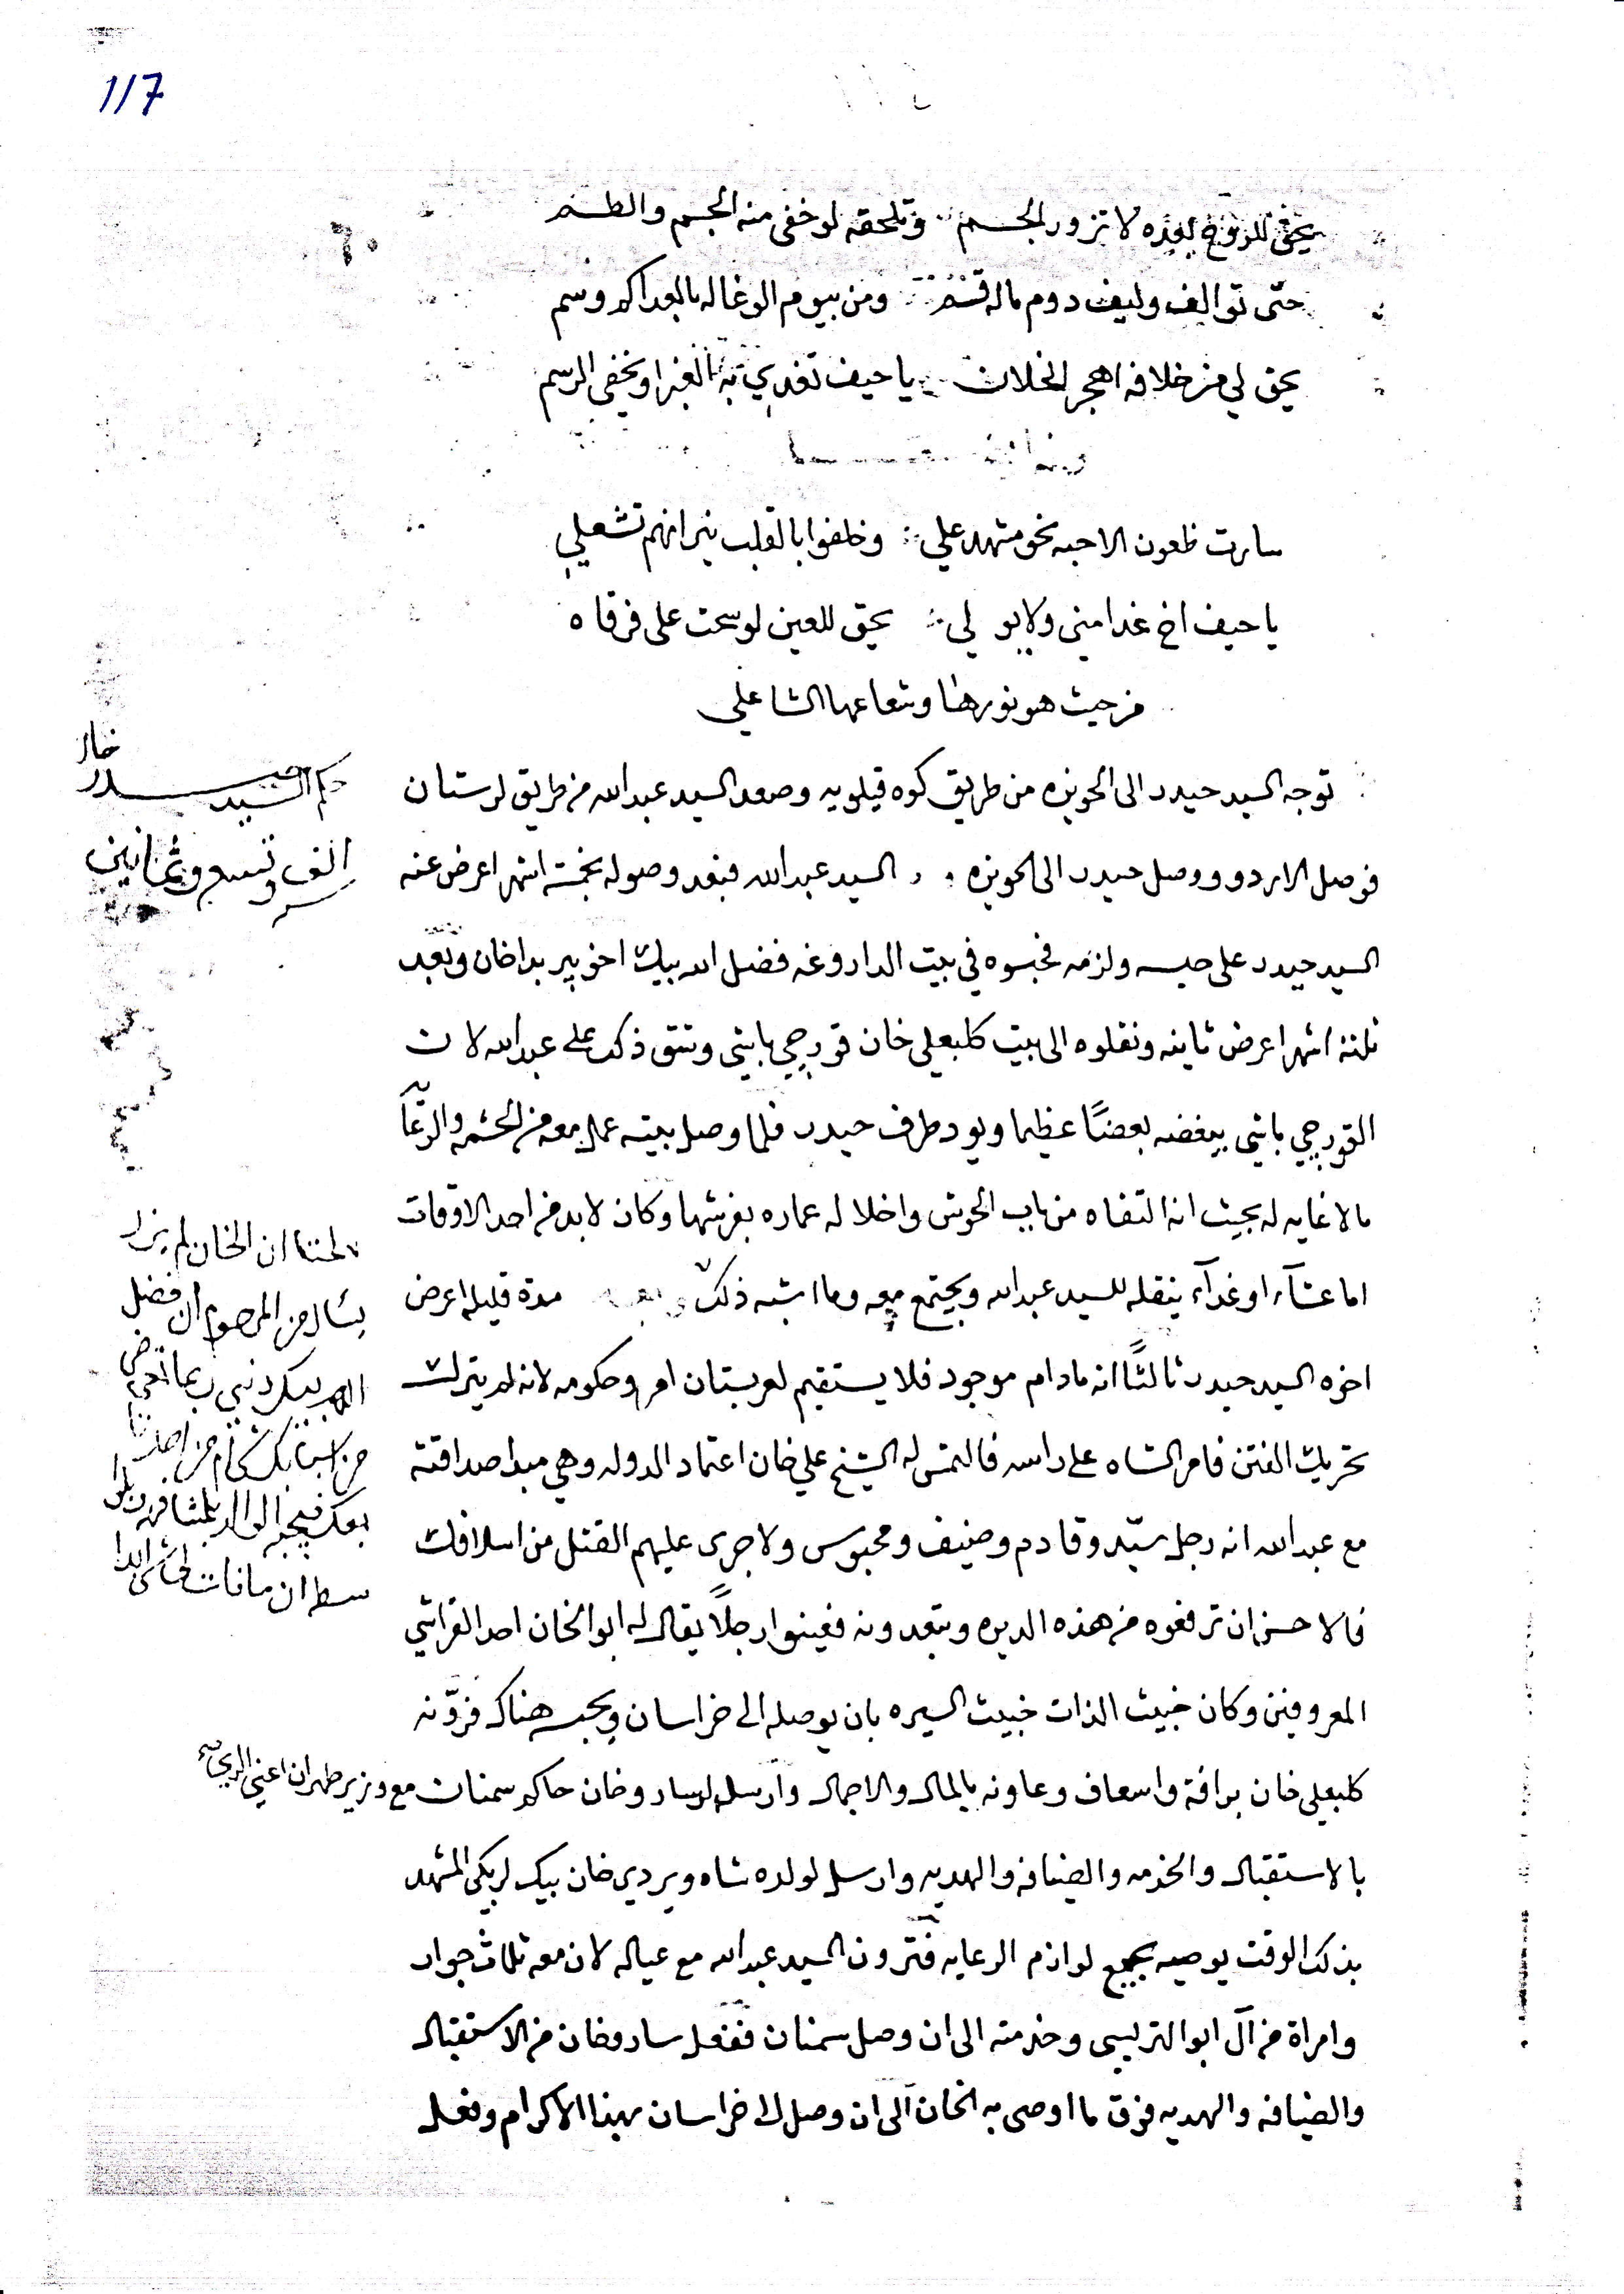 117
٦٠
يحق للروح بعده لا تزور الجسم وتلحقه لو خفى منه الجسم والطسم
حتى توالف وليف دوم ماله قسم ومن بيوم الوغا له بالعدا كم وسم
يحق لي من خلافه اهجر الخلان يا حيف تغدي به الغبرا ويخفى الرسم
سارت ظعون الاحبه نحو مشهد علي وخلفوا بالقلب نيرانهم تشعلي
يا حيف اخ غدا مني ولا يو لي يحق للعين لو سحت على فرقاه
من حيث هو نورها وشعاعها الشاعلي
حكم السيد حيدر خان
الف وتسع وثمانين
توجه السيد حيدر الى الحويزه من طريق كوه قيلويه وصعد السيد عبدالله من طريق لرستان
فوصل الاردو ووصل حيدر الى الحويزه و السيد عبدالله فبعد وصوله بخمسة اشهر اعرض عنه
السيد حيدر على حبسه ولزمه فحبسوه في بيت الداروغه فضل الله بيك اخو بير بداخان وبعد
ثلثة اشهر اعرض ثانيه ونقلوه الى بيت كلبعلي خان قورجي باشي وشق ذلك على عبدالله لان
القورجي باشي يبغضه بعضًا عظيما ويود طرف حيدر فلما وصل بيته عمل معه من الحشمه والرعاية
ما لا غايه له بحيث انه التقاه من باب الحوش واخلا له عماره بفرشها وكان لابد من احد الاوقات
اما عشآء او غدآء ينقله للسيد عبدالله ويجتمع معه وما اشبه ذلك وبعد مدة قليله اعرض
اخوه السيد حيدر ثالثًا انه مادام موجود فلا يستقيم لعربستان امر وحكومه لانه لم يترك
تحريك الفتن فامر الشاه على راسه فالتمس له الشيخ علي خان اعتماد الدوله وهي مبدا صداقته
مع عبدالله انه رجل سيّد وقادم وضيف ومحبوس ولا جرى عليهم القتل من اسلافك
فالاحسن ان ترفعوه من هذه الديره وتبعدونه فعينوا رجلًا يقال له ابو الخان احد القراشي
المعروفين وكان خبيث الذات خبيث السيره بان يوصله الى خراسان ويحبسه هناك فزوّنه
كلبعلي خان برافة واسعاف وعاونه بالمال والاجمال وارسل لسارو خان حاكم سمنان مع وزير طهران اعني الري
بالاستقبال والخدمه والضيافه والهديه وارسل لولده شاه ويردي خان بيكلربكي المشهد
بذلك الوقت يوصيه بجميع لوازم الرعايه فتزون السيد عبدالله مع عياله لان معه ثلاث جوار
وامراة من آل ابو التربسي وخدمته الى ان وصل سمنان ففعل سارو خان من الاستقبال
والضيافه والهديه فوق ما اوصى به الخان الى ان وصل الى خراسان بهذا الاكرام وفعل
ان الخان لم يزل
يسال من المرحوم ان فضل